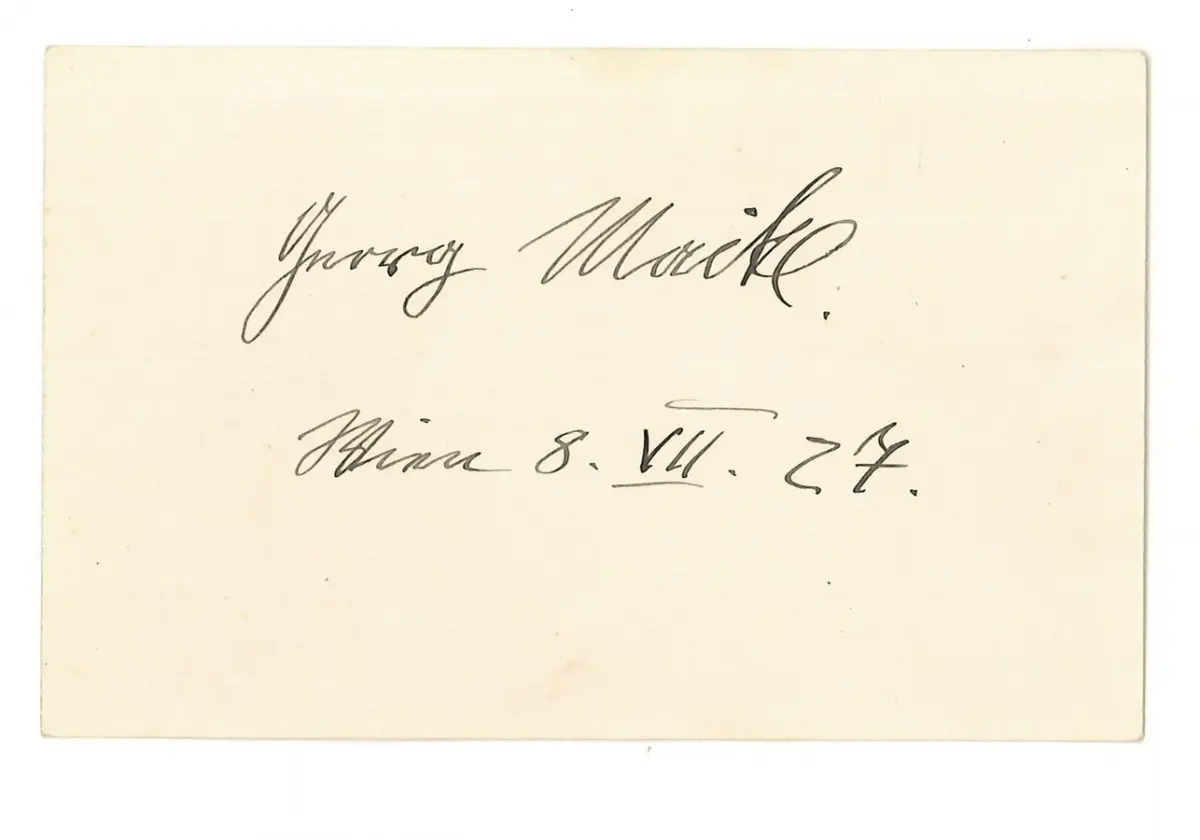 Georg Maikl.
Wien 8. VII. 27.